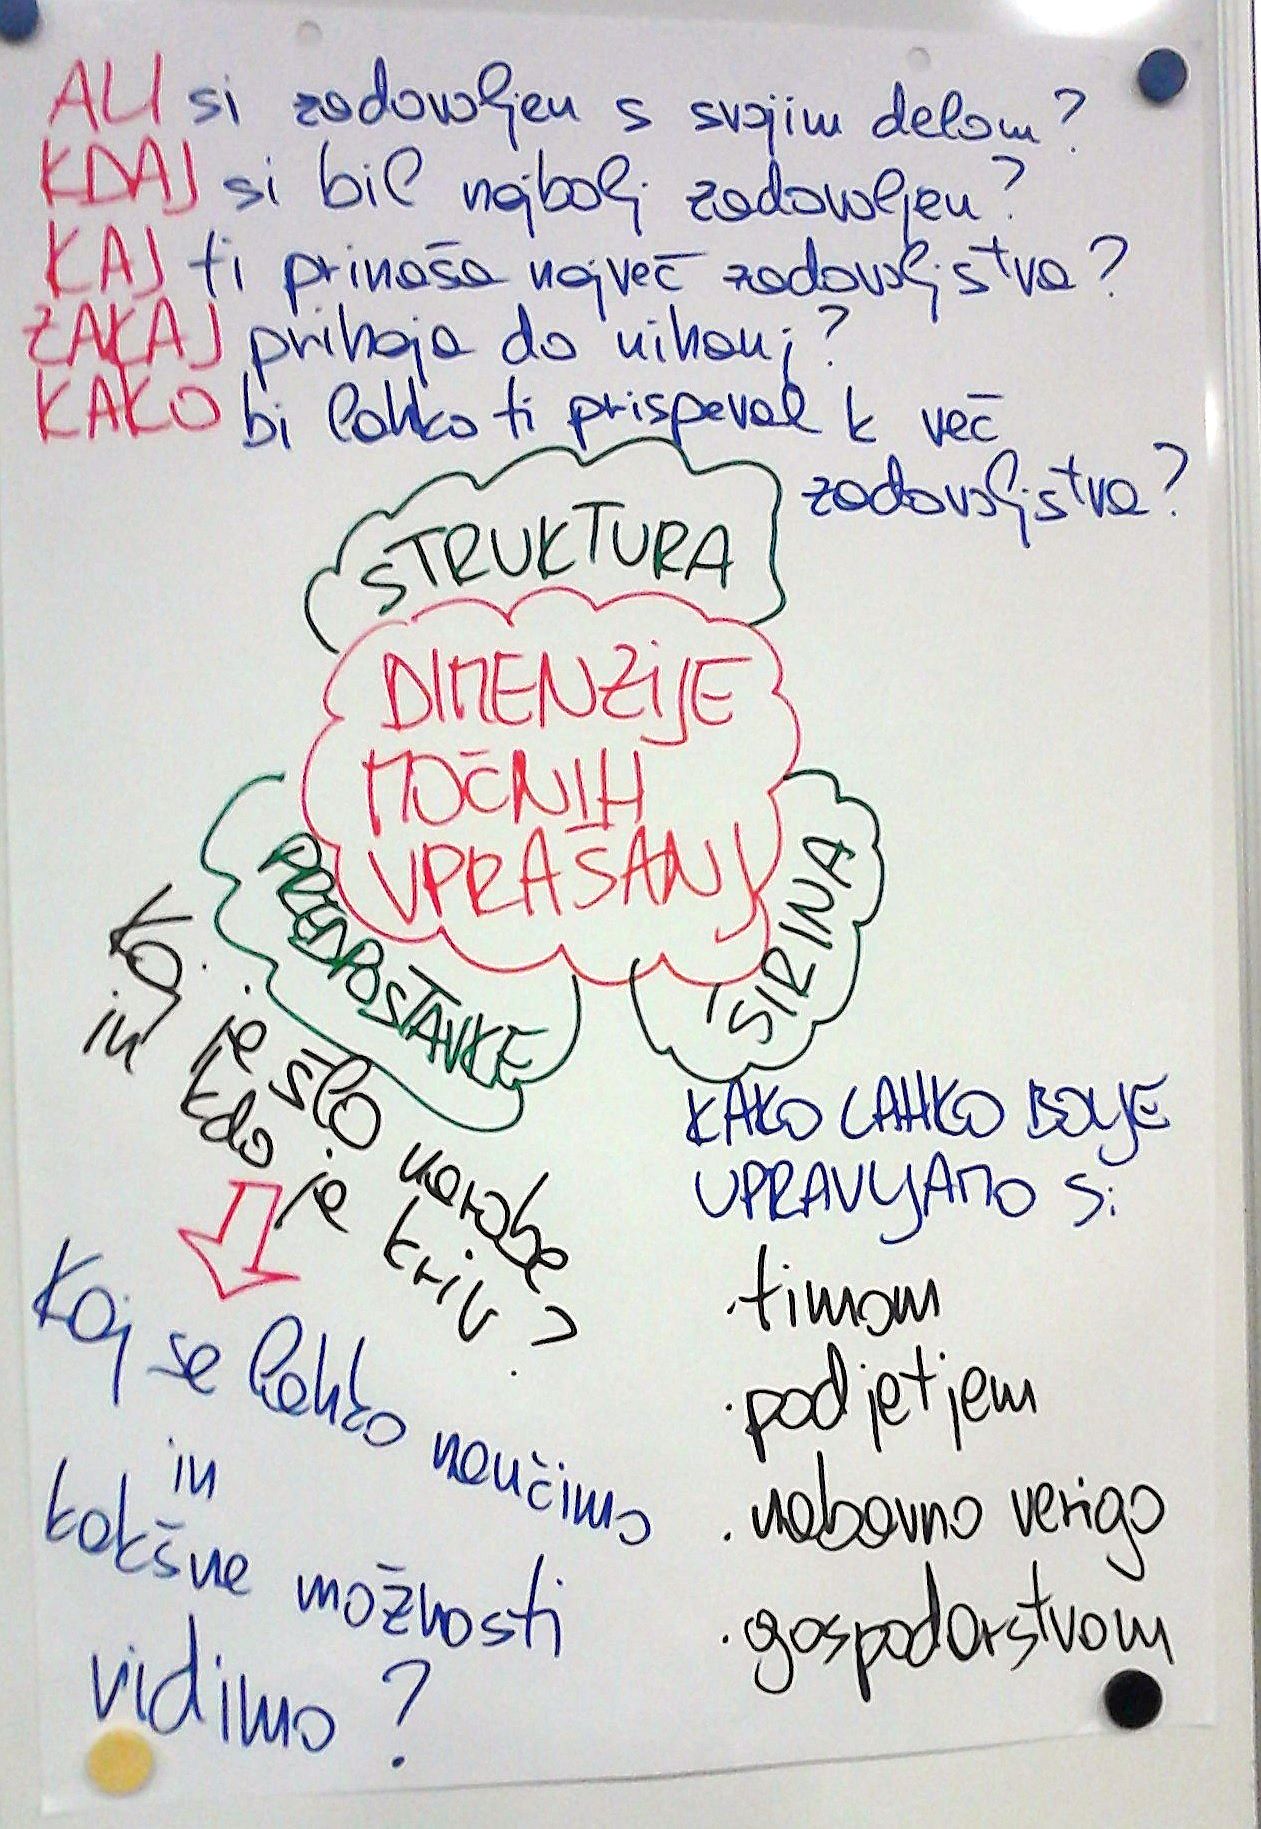 ALI si zadovoljen s svojim delom?
KDAJ si bil najbolj zadovoljen?
KAJ ti prinaša največ zadovoljstva?
ZAKAJ prihaja do nihanj?
KAKO bi lahko ti prispeval k več
zadovoljstva?
STRUKTURA
DIMENZIJE
MOČNIH
VPRAŠANJ
PREDPOSTAVKE
ŠIRINA
Kaj je šlo narobe
in kdo je kriv?
Kaj se lahko naučimo
in
kakšne možnosti
vidimo?
KAKO LAHKO BOLJE
UPRAVLJAMO S:
.timom
.podjetjem
.nabavno verigo
.gospodarstvom